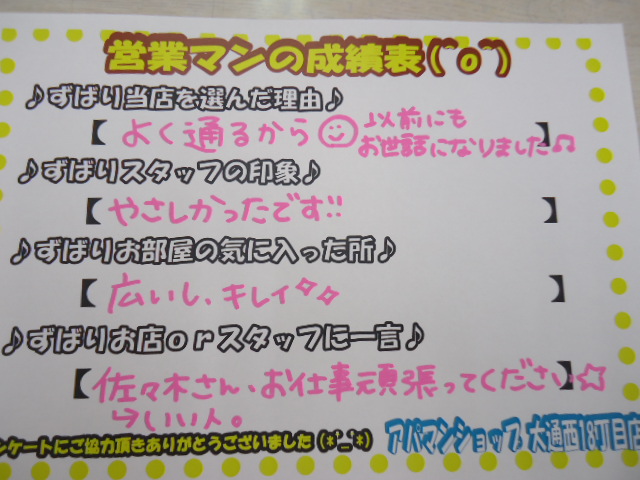 営業マンの成績表(^o^)
♪ずばり当店を選んだ理由♪
【よく通るから☺ 以前にも
お世話になりました♫】
♪ずばりスタッフの印象♪
【やさしかったです!!】
♪ずばりお部屋の気に入った所♪
【広いし、キレイ】
♪ずばりお店orスタッフに一言♪
【佐々木さん、お仕事頑張ってください☆】
いい人。
ンケートにご協力頂きありがとうございました(*'_'*)
アパマンショップ 大通西18丁目店